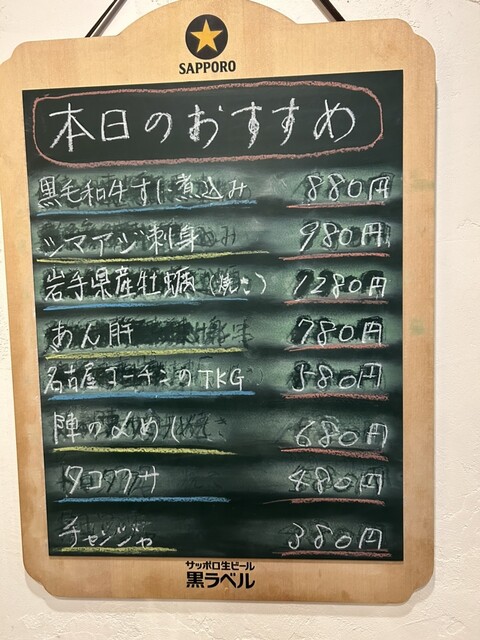 SAPPORO
本日のおすすめ
黒毛和牛すじ煮込み 880円
シマアジ刺身 980円
岩手県産牡蠣(焼き) 1280円
あん肝 780円
名古屋コーチンのTKG 580円
陣の〆めし 680円
タコワサ 480円
チャンジャ 380円
サッポロ生ビール
黒ラベル